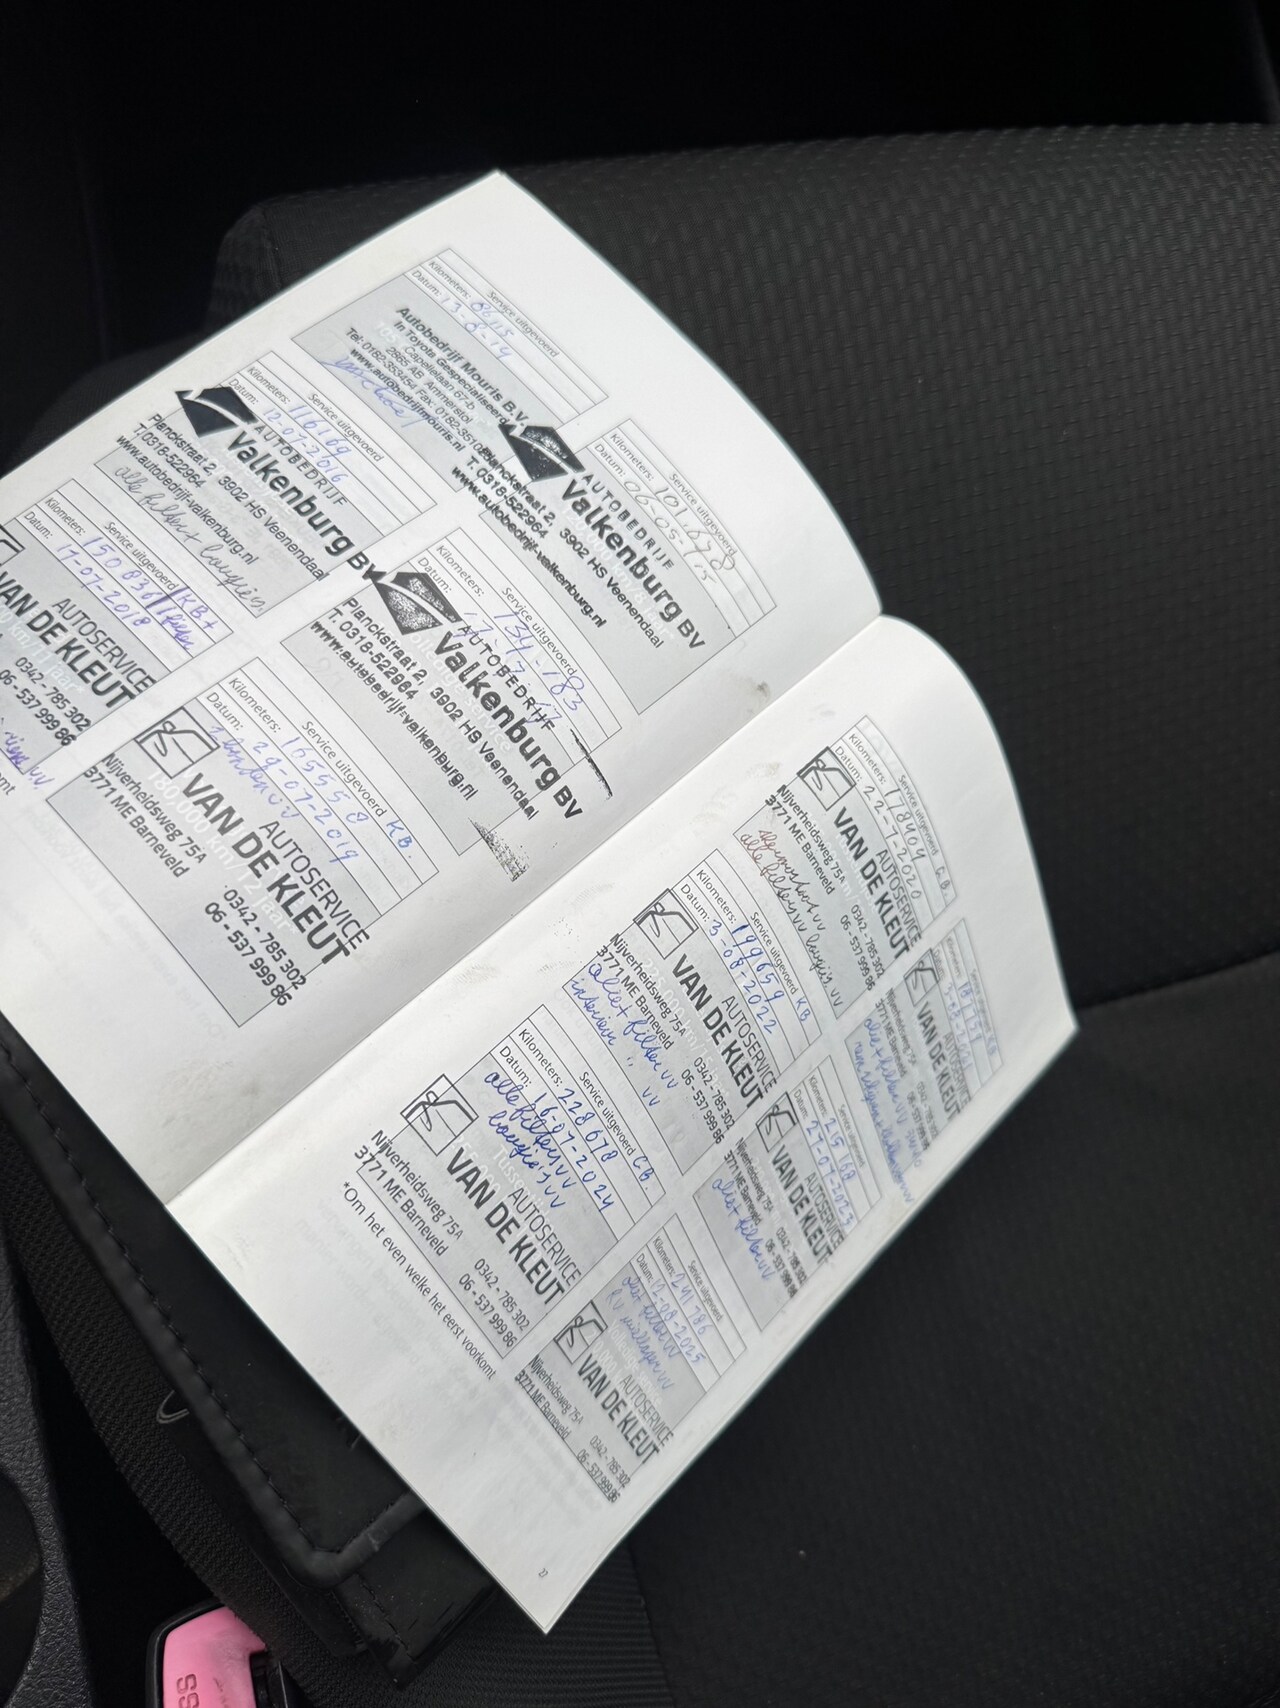 Service uitgevoerd
Kilometers: 86115
Datum: 13-8-14
Autobedrijf Mouris B.V.
In Toyota Gespecialiseerd
Capellelaan 67-b
2865 AB Ammerstol
Tel: 0182-353454 Fax: 0182-3510
www.autobedrijfmouris.nl
Service uitgevoerd
Kilometers: 101.678
Datum: 06-05-15
AUTOBEDRIJF
Valkenburg BV
Planckstraat 2, 3902 HS Veenendaal
T. 0318-522964
www.autobedrijf-valkenburg.nl
Service uitgevoerd
Kilometers: 116169
Datum: 12-07-2016
AUTOBEDRIJF
Valkenburg BV
Planckstraat 2, 3902 HS Veenendaal
T. 0318-522964
www.autobedrijf-valkenburg.nl
alle filters + bougies
Service uitgevoerd
Kilometers: 134-183
Datum:
AUTOBEDRIJF
Valkenburg BV
Planckstraat 2, 3902 HS Veenendaal
T. 0318-522964
www.autobedrijf-valkenburg.nl
Service uitgevoerd KB+
Kilometers: 150836
Datum: 17-07-2018
AUTOSERVICE
VAN DE KLEUT
0342 - 785 302
06 - 537 999 86
Service uitgevoerd KB.
Kilometers: 165550
Datum: 29-07-2019
AUTOSERVICE
VAN DE KLEUT
180.000 km/12 jaar
Nijverheidsweg 75A 0342 - 785 302
3771 ME Barneveld 06 - 537 999 86
Service uitgevoerd G.B.
Kilometers: 178404
Datum: 22-7-2020
AUTOSERVICE
VAN DE KLEUT
Nijverheidsweg 75A 0342 - 785 302
3771 ME Barneveld 06 - 537 999 86
alle filters vv bougies vv
Service uitgevoerd KB
Kilometers:
Datum:
AUTOSERVICE
VAN DE KLEUT
Nijverheidsweg 75A 0342 - 785 302
3771 ME Barneveld 06 - 537 999 86
olie + filter vv
Service uitgevoerd KB
Kilometers: 199659
Datum: 3-08-2022
AUTOSERVICE
VAN DE KLEUT
Nijverheidsweg 75A 0342 - 785 302
3771 ME Barneveld 06 - 537 999 86
olie + filter vv
interieur " vv
Service uitgevoerd
Kilometers: 215168
Datum: 27-07-2023
AUTOSERVICE
VAN DE KLEUT
Nijverheidsweg 75A 0342 - 785 302
3771 ME Barneveld 06 - 537 999 86
olie + filter vv
Service uitgevoerd G.B.
Kilometers: 228678
Datum: 16-07-2024
alle filters vv
bougies vv
AUTOSERVICE
VAN DE KLEUT
Nijverheidsweg 75A 0342 - 785 302
3771 ME Barneveld 06 - 537 999 86
Service uitgevoerd
Kilometers: 241786
Datum: 12-08-2025
olie + filter vv
RV wiellager vv
AUTOSERVICE
VAN DE KLEUT
Nijverheidsweg 75A 0342 - 785 302
3771 ME Barneveld 06 - 537 999 86
*Om het even welke het eerst voorkomt
27